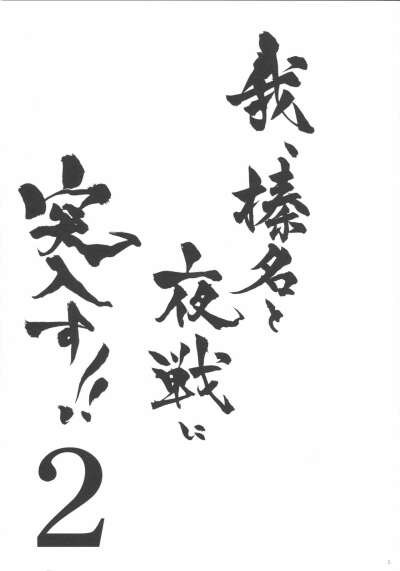 我、榛名と
夜戦に
突入す!!
2